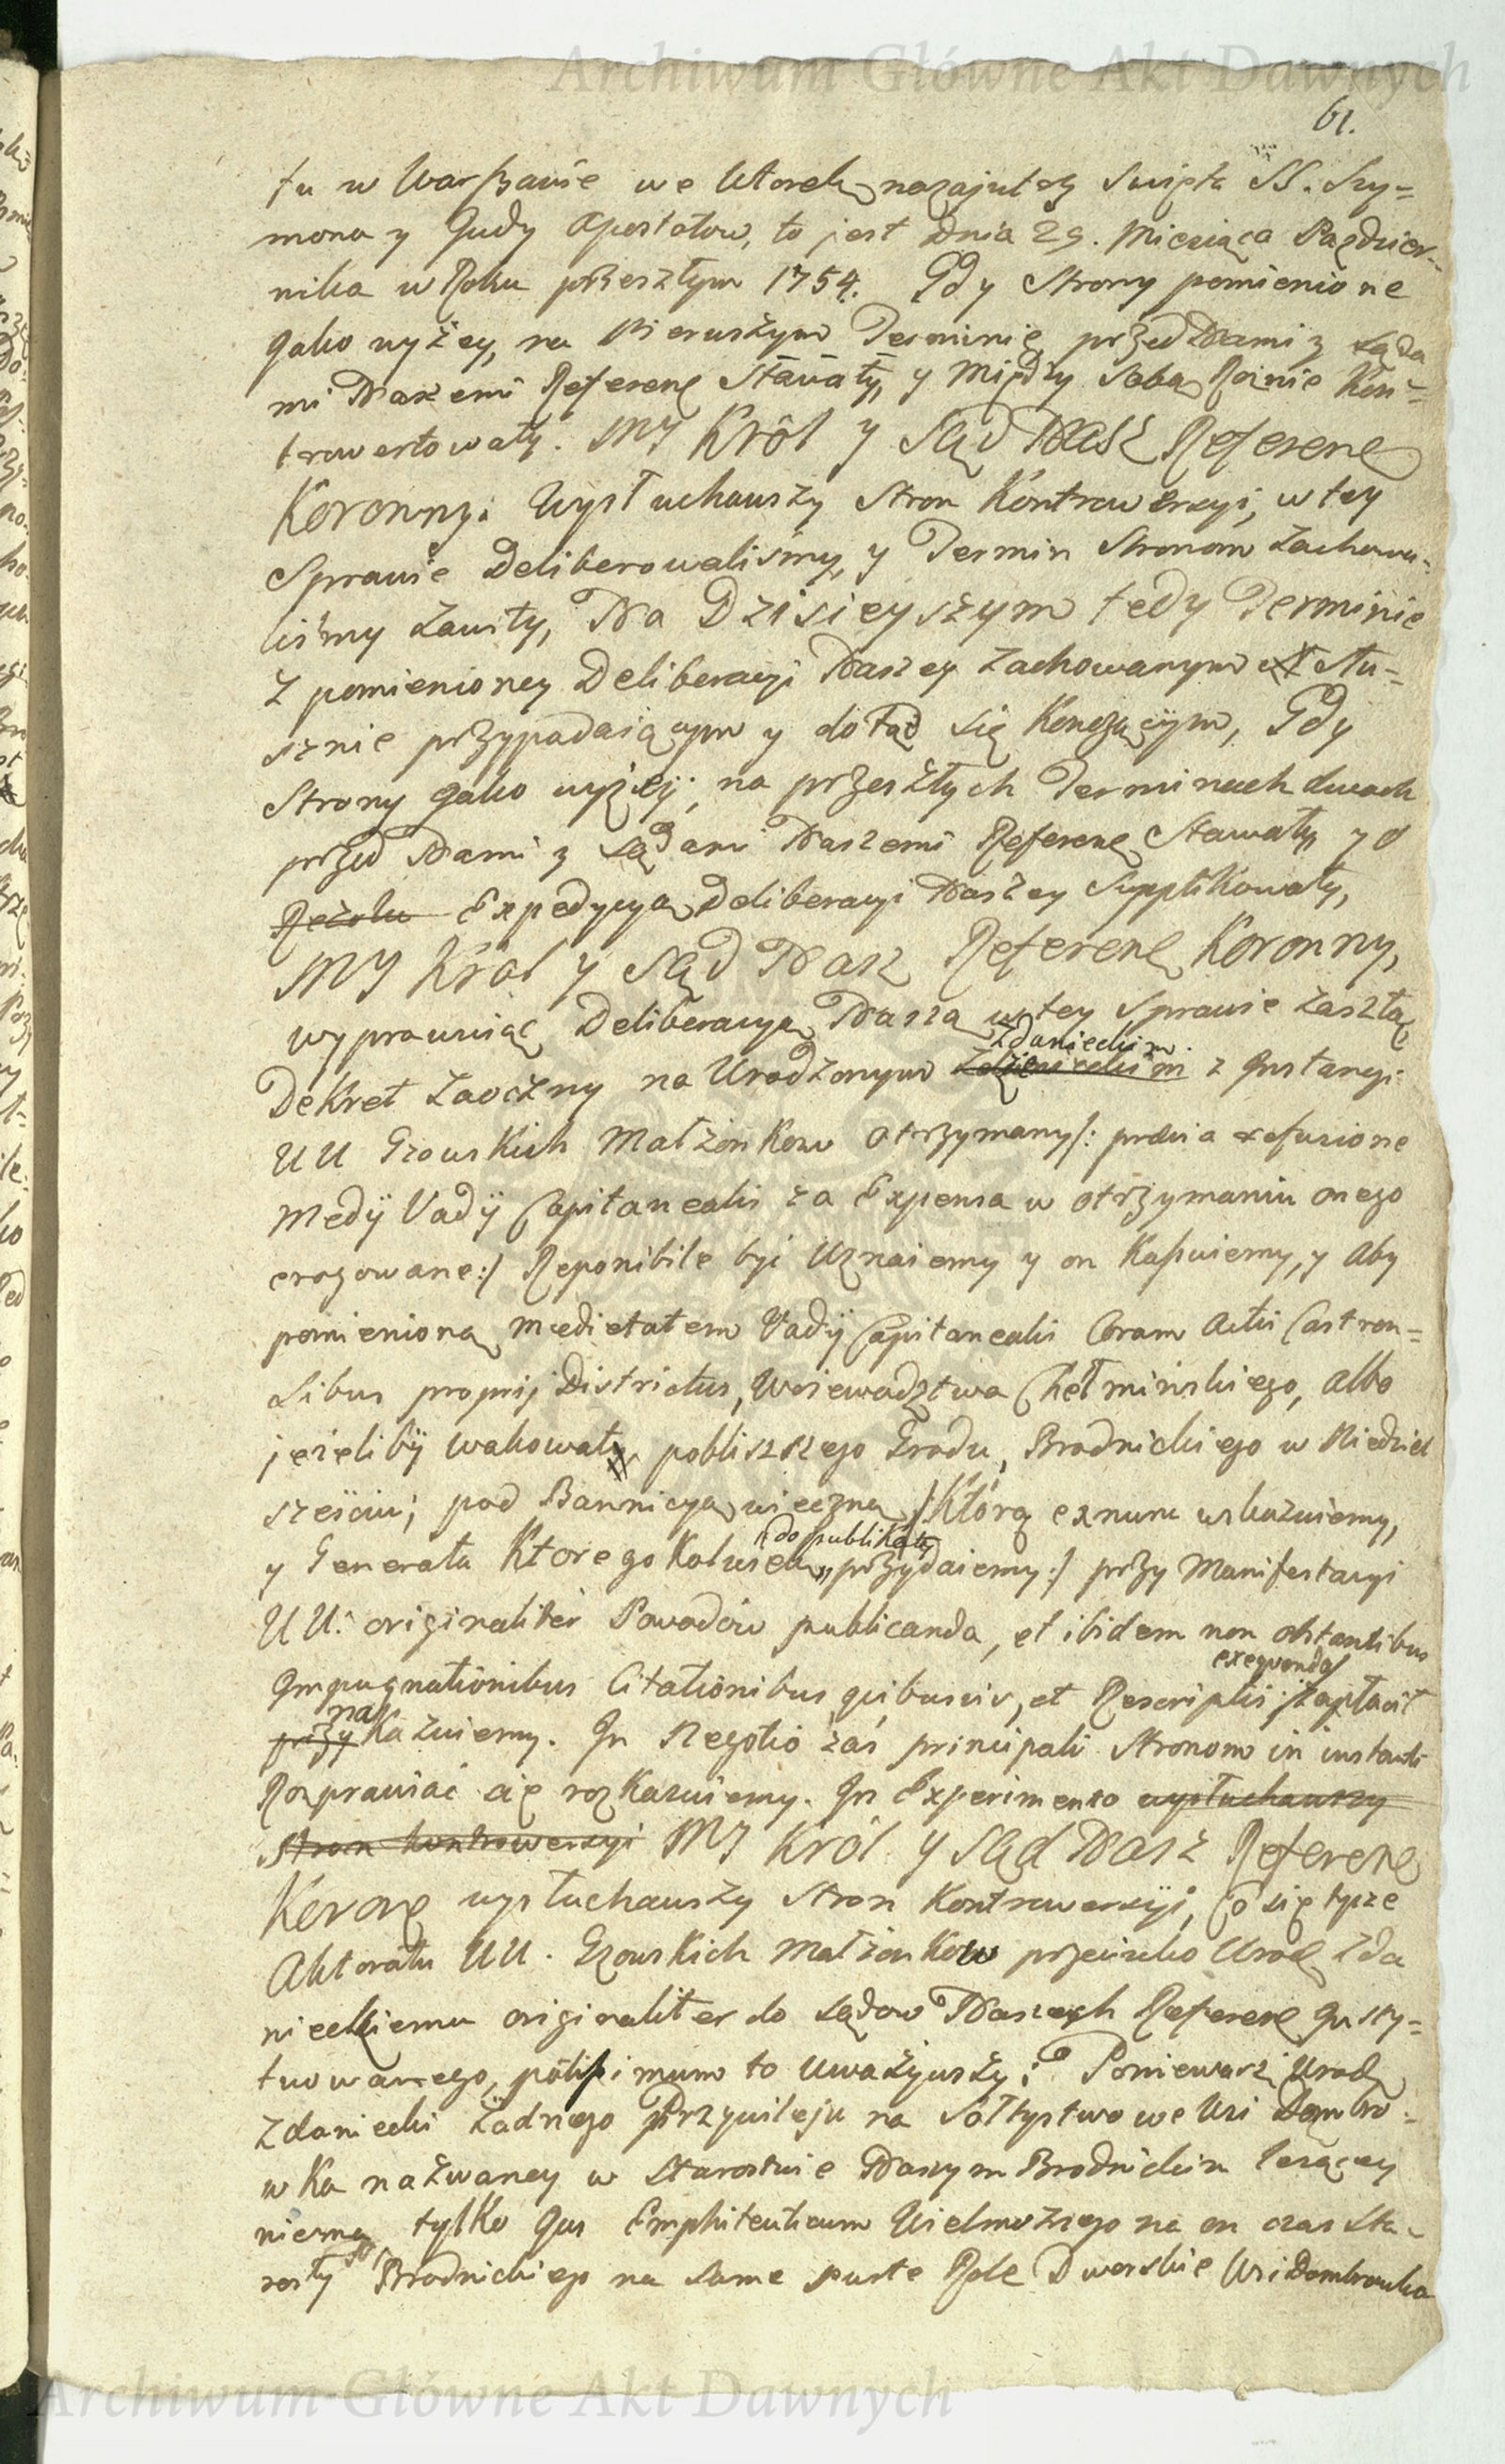 Archiwum Główne Akt Dawnych
61.
tu w Warszawie we Wtorek nazajutrz Swięta SS. Szy=
mona y Judy Apostołow, to jest Dnia 29. Miesiąca Pazdzier=
nika w Roku przeszłym 1754. Gdy Strony pomienione
Jako wyżey, na Pierwszym Terminie przed Nami z Sąda
mi Naszemi Referenc Stawały, y Między Sobą Roznie Kon=
trowertowały. MY Król y Sąd Nasz Referenc
Koronny: Wysłuchawszy Stron Kontrowersyi, w tey
Sprawie Deliberowaliśmy, y Termin Stronom Zachowa=
liśmy Zawity, Na Dzisieyszym tedy Terminie
z pomienioney Deliberacyi Naszey Zachowanym Słu=
sznie przypadaiącym y dotąd się Konczącym, Gdy
Strony Jako wyżey, na przeszłych Terminach dwoch
przed Nami z Sądami Naszemi Referenc Stawały, y o
Rezolu Expedycyą Deliberacyi Naszey Supplikowały,
MY Krol y Sąd Nasz Referenc Koronny,
wyprawuiąc Deliberacyą Naszą w tey Sprawie Zaszłą,
Zdanieckim
Dekret Zaoczny na Urodzonym z Instancyi
UU Gzowskich Małżonkow otrzymany /: praevia refusione
Medij Vadij Capitanealis za Expensa w otrzymaniu onego
erogowane :/ Reponibile być Uznaiemy y on Kassuiemy, y Aby
pomienioną medietatem Vadij Capitanealis Coram Actis Castren=
sibus proprij Districtus, Woiewodztwa Chełmińskiego, Albo
jeżeliby wakowały pobliszszego Grodu, Brodnickiego w Niedziel
sześciu; pod Bannicyą wieczną /: Którą ex nunc wskazuiemy,
do publikaty
y Generała Ktorego Kolwiek przydaiemy :/ przy Manifestacyi
UU: originaliter Powodow publicanda, et ibidem non obstantibus
exequenda
Impugnationibus Citationibus, quibusvis, et Rescriptis zapłacił
na
przy Kazuiemy. In Negotio zaś principali Stronom in instanti
Rozprawiać się rozkazuiemy. In Experimento wysłuchawszy
Stron kontrowersyi MY Król y Sąd Nasz Referenc
Koronę wysłuchawszy Stron Kontrowersyi, Co się tycze
Aktoratu UU. Gzowskich Małżonkow przeciwko Urodz Zda
nieckiemu originaliter do Sądow Naszych Referenc Insty=
tuowanego, potissimum to Uważywszy: Ponieważ Urodz
Zdaniecki Żadnego Przywileju na Sołtystwo we Wsi Dombro=
wka nazwaney w Starostwie Naszym Brodnickim leżącey
niema, tylko Jus Emphiteuticum Wielmożnego na on czas Sta=
rosty Brodnickiego na same puste Role Dworskie Wsi Dombrowka
Archiwum Główne Akt Dawnych